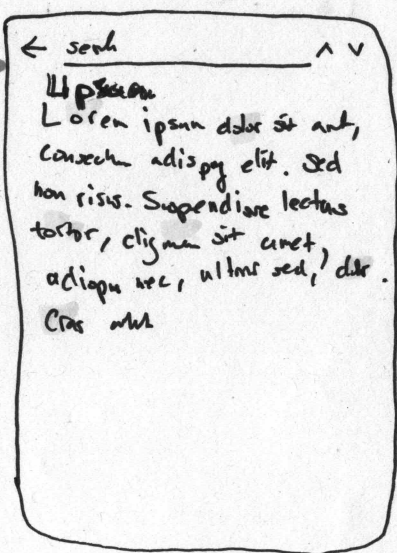 ← serch ∧ ∨
Lorem ipsum dolor sit amt,
Consectu adispg elit. Sed
non risus. Suspendisse lectus
tortor, dignan sit amet,
adiopu nec, ultrs sed, dolr.
Cras